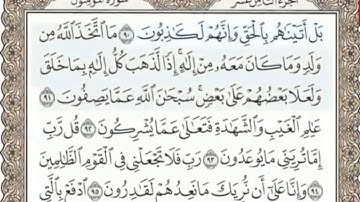 الجزء الثامن عشر سورة المؤمنون
بَلْ أَتَيْنَٰهُم بِٱلْحَقِّ وَإِنَّهُمْ لَكَٰذِبُونَ ٩٠ مَا ٱتَّخَذَ ٱللَّهُ مِن
وَلَدٍ وَمَا كَانَ مَعَهُۥ مِنْ إِلَٰهٍ إِذًا لَّذَهَبَ كُلُّ إِلَٰهٍۭ بِمَا خَلَقَ
وَلَعَلَا بَعْضُهُمْ عَلَىٰ بَعْضٍ سُبْحَٰنَ ٱللَّهِ عَمَّا يَصِفُونَ ٩١
عَٰلِمِ ٱلْغَيْبِ وَٱلشَّهَٰدَةِ فَتَعَٰلَىٰ عَمَّا يُشْرِكُونَ ٩٢ قُل رَّبِّ
إِمَّا تُرِيَنِّى مَا يُوعَدُونَ ٩٣ رَبِّ فَلَا تَجْعَلْنِى فِى ٱلْقَوْمِ ٱلظَّٰلِمِينَ
٩٤ وَإِنَّا عَلَىٰٓ أَن نُّرِيَكَ مَا نَعِدُهُمْ لَقَٰدِرُونَ ٩٥ ٱدْفَعْ بِٱلَّتِى